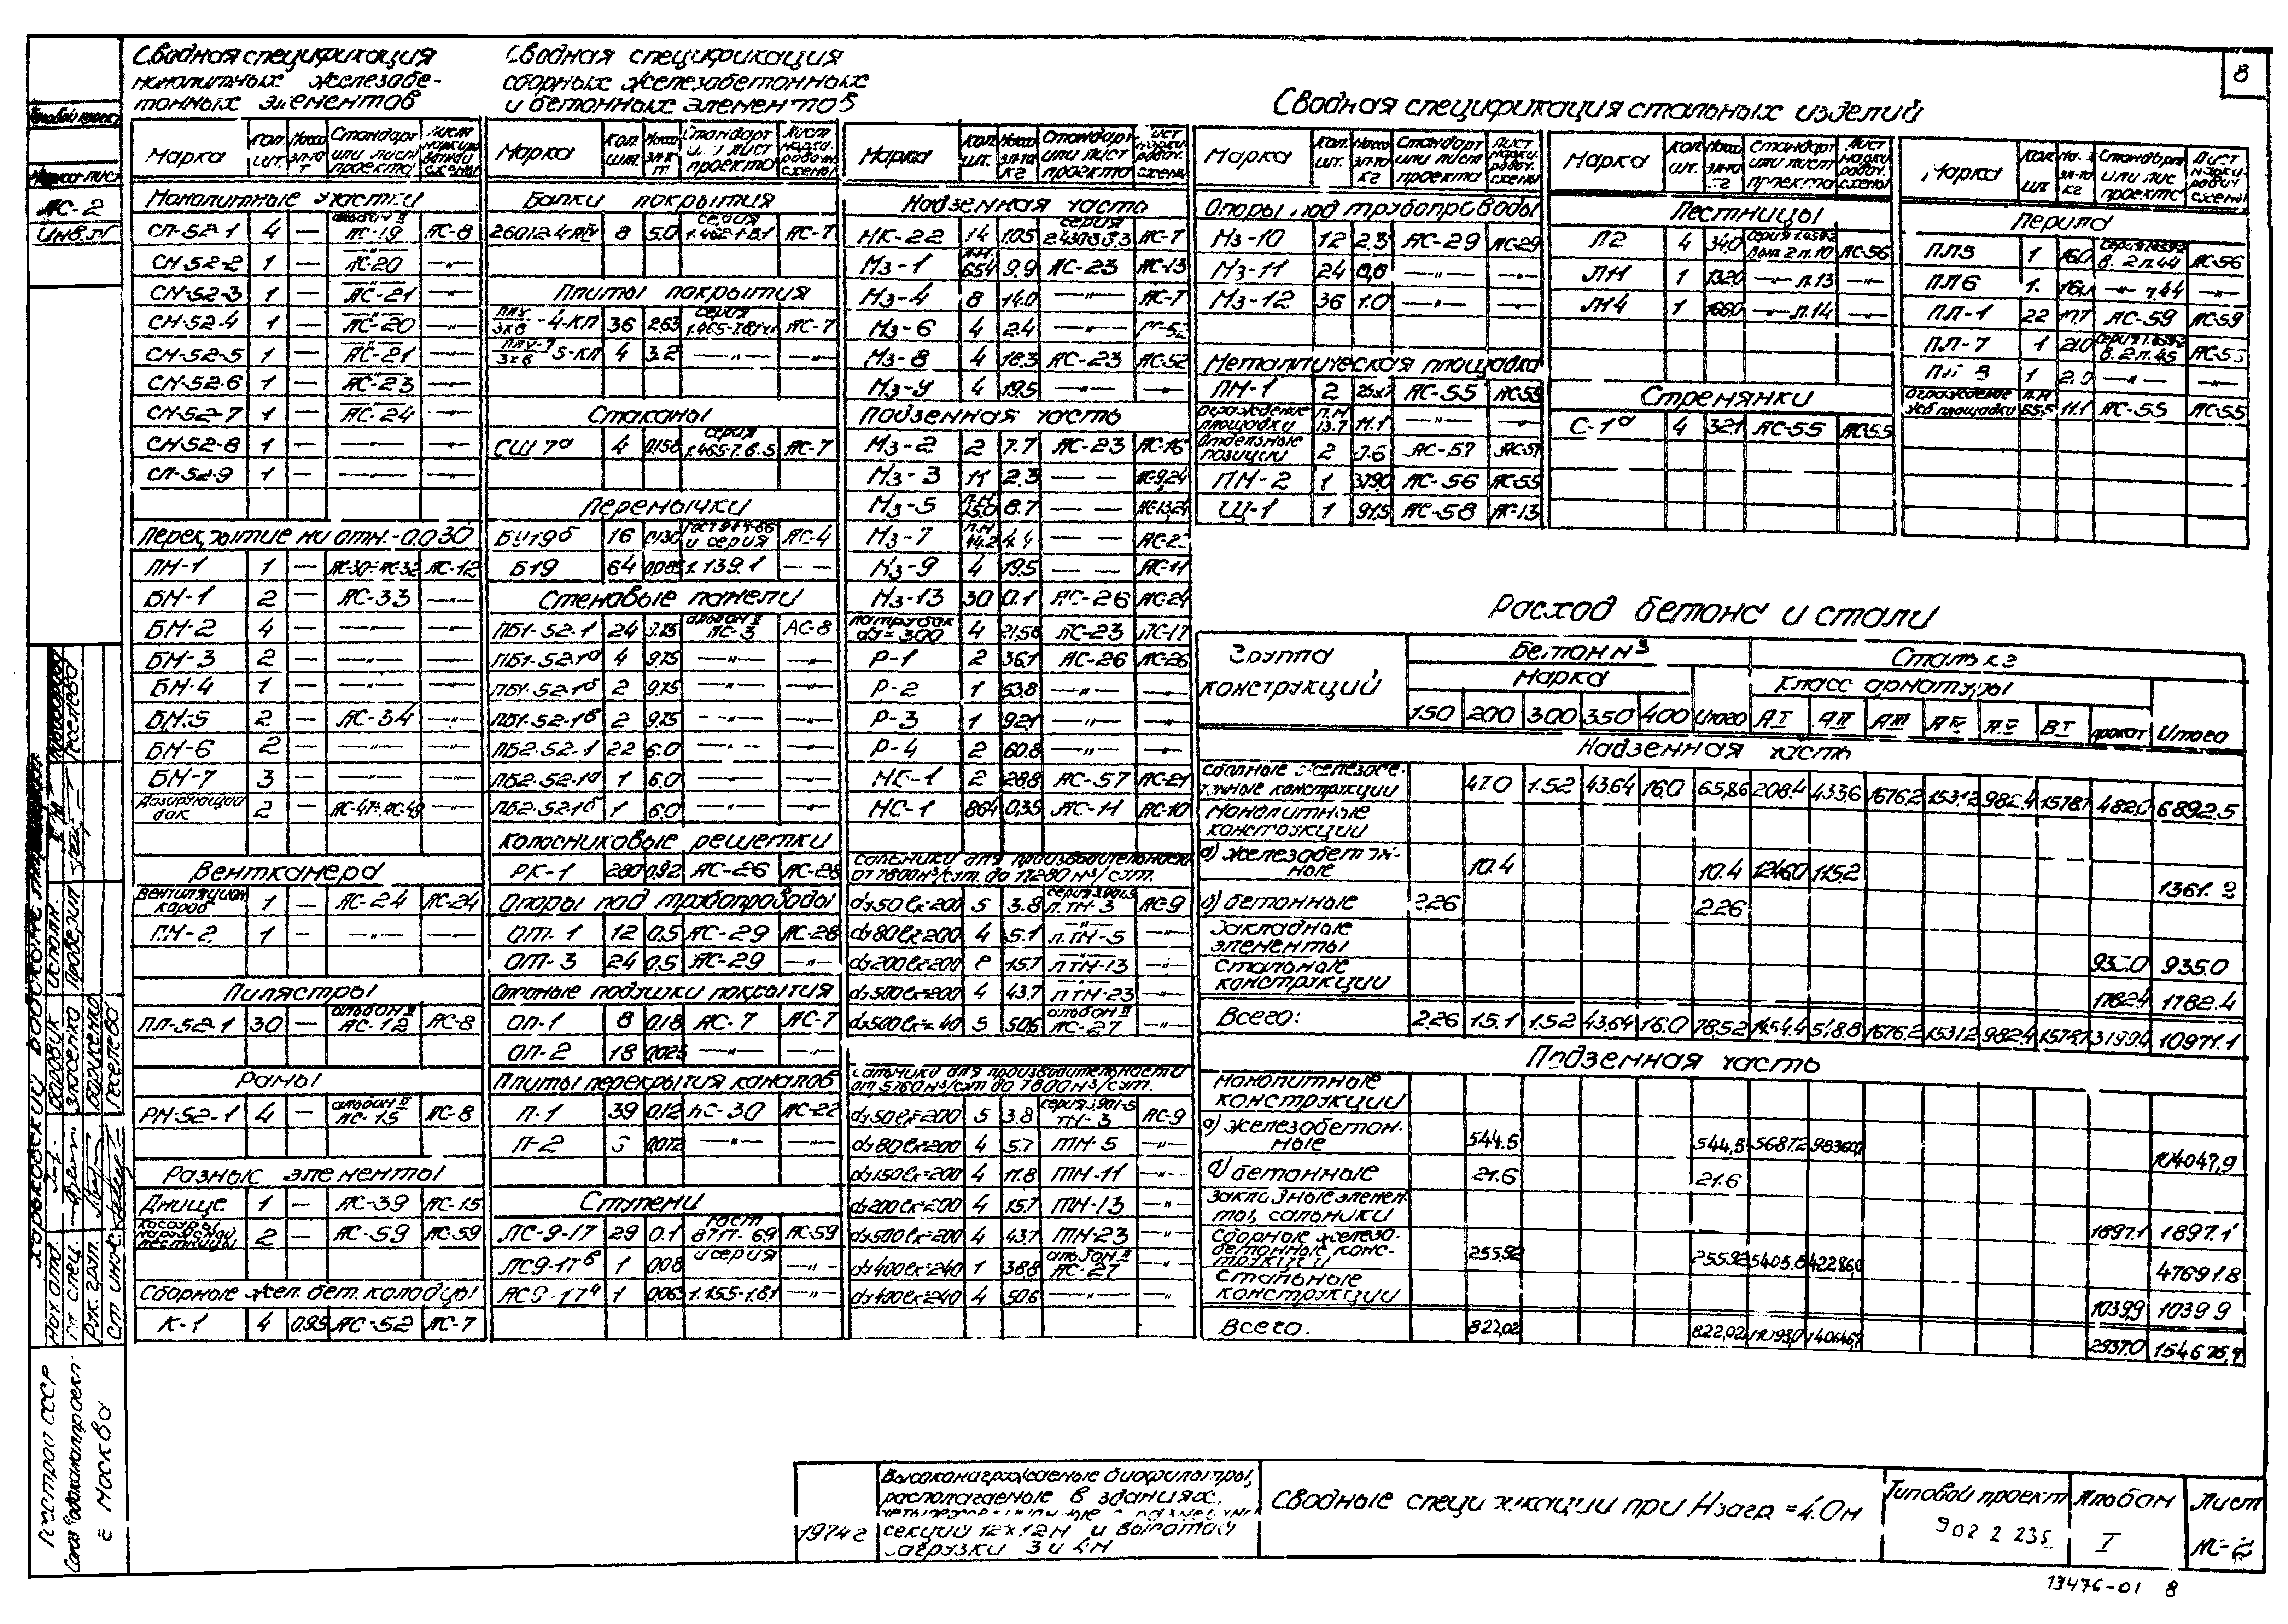 8
Сводная спецификация
монолитных железобе-
тонных элементов
Марка Кол. шт. Масса эл-та т Стандарт или лист проекта Лист маркировочной схемы
Монолитные участки
СМ-52-1 4 — альбом II АС-19 АС-8
СМ-52-2 1 — АС-20 —"—
СМ-52-3 1 — АС-21 —"—
СМ-52-4 1 — АС-20 —"—
СМ-52-5 1 — АС-21 —"—
СМ-52-6 1 — АС-23 —"—
СМ-52-7 1 — АС-24 —"—
СМ-52-8 1 — —"— —"—
СМ-52-9 1 — —"— —"—
Перекрытие на отм.-0.030
ПМ-1 1 — АС-30÷АС-32 АС-12
БМ-1 2 — АС-33 —"—
БМ-2 4 — —"— —"—
БМ-3 2 — —"— —"—
БМ-4 1 — —"— —"—
БМ-5 2 — АС-34 —"—
БМ-6 2 — —"— —"—
БМ-7 3 — —"— —"—
Дозирующий бак 2 — АС-47÷АС-49 —"—
Венткамера
Вентиляцион. короб 1 — АС-24 АС-24
ПМ-2 1 — —"— —"—
Пилястры
ПЛ-52-1 30 — альбом II АС-12 АС-8
Рамы
РМ-52-1 4 — альбом II АС-15 АС-8
Разные элементы
Днище 1 — АС-39 АС-15
Косоуры наружной лестницы 2 — АС-59 АС-59
Сборные жел. бет. колодцы
К-1 4 0.95 АС-52 АС-7
Сводная спецификация
сборных железобетонных
и бетонных элементов
Марка Кол. шт. Масса эл-та т Стандарт или лист проекта Лист маркировочной схемы
Балки покрытия
8 5.0 серия 1.462-1 в.1 АС-7
Плиты покрытия
-4-КП 36 2.63 серия АС-7
5-КП 4 3.2 —"— —"—
Стаканы
СШ 7а 4 0.158 серия 1.465-7. в.5 АС-7
Перемычки
БУ19б 16 0.130 гост 948-66 и серия АС-4
Б19 64 0.085 1.139.1 — —
Стеновые панели
ПБ1-52-1 24 9.75 альбом II АС-3 АС-8
ПБ1-52-1а 4 9.75 —"— —"—
ПБ1-52-1б 2 9.75 —"— —"—
ПБ1-52-1в 2 9.75 —"— —"—
ПБ2-52-1 22 6.0 —"— —"—
ПБ2-52-1а 1 6.0 —"— —"—
ПБ2-52-1б 1 6.0 —"— —"—
Колосниковые решетки
РК-1 280 0.92 АС-26 АС-28
Опоры под трубопроводы
ОТ-1 12 0.5 АС-29 АС-28
ОТ-3 24 0.5 АС-29 —"—
Опорные подушки покрытия
ОП-1 8 0.18 АС-7 АС-7
ОП-2 18 0.025 —"— —"—
Плиты перекрытия каналов
П-1 39 0.12 АС-30 АС-22
П-2 0.072 —"— —"—
Ступени
ЛС-9-17 29 0.1 гост 8717-69 АС-59
ЛС9-17в 1 0.08 и серия —"—
ЛС9-17а 1 0.063 1.155-1 в.1 —"—
Сводная спецификация стальных изделий
Марка Кол. шт. Масса эл-та кг Стандарт или лист проекта Лист маркировочн. схемы
Надземная часть
НК-22 14 1.05 серия 2.430-3 в.3 АС-7
Мз-1 п.м. 65.4 9.9 АС-23 АС-13
Мз-4 8 14.0 —"— АС-7
Мз-6 4 2.4 —"—
Мз-8 4 18.3 АС-23 АС-52
Мз-У 4 19.5 —"— —"—
Подземная часть
Мз-2 2 7.7 АС-23 АС-16
Мз-3 11 2.3 — — АС-9,24
Мз-5 п.м 15.0 8.7 — — АС-13,24
Мз-7 п.м 14.2 4.4 — —
Мз-9 4 19.5 — — АС-11
Мз-13 30 0.1 АС-26 АС-24
патрубок dу=300 4 21.58 АС-23 АС-17
Р-1 2 36.1 АС-26 АС-26
Р-2 1 53.8 —"— —"—
Р-3 1 92.1 —"— —"—
Р-4 2 60.8 —"— —"—
МС-1 2 28.8 АС-57 АС-21
МС-1 864 0.35 АС-11 АС-10
Сальники для производительности
от 7800м³/сут. до 17280 м³/сут.
dу50 ℓк=200 5 3.8 серия 3.901-5 л.ТМ-3 АС-9
dу80 ℓк=200 4 5.1 л.ТМ-5 —"—
dу200 ℓк=200 15.7 л.ТМ-13 —"—
dу500 ℓк=200 4 43.7 л.ТМ-23 —"—
5 50.6 альбом II АС-27 —"—
Сальники для производительности
от 5760м³/сут до 7800м³/сут.
dу50 ℓк=200 5 3.8 серия 3.901-5 ТМ-3 АС-9
dу80 ℓк=200 4 5.7 ТМ-5 —"—
dу150 ℓк=200 4 11.8 ТМ-11 —"—
dу200 ℓк=200 4 15.7 ТМ-13 —"—
dу500 ℓк=200 4 43.7 ТМ-23 —"—
dу400 ℓк=240 1 38.8 альбом II АС-27 —"—
dу400 ℓк=240 4 50.6 —"— —"—
Марка Кол. шт. Масса эл-та кг Стандарт или лист проекта Лист маркировочн. схемы
Опоры под трубопроводы
Мз-10 12 2.3 АС-29 АС-29
Мз-11 24 —"— —"—
Мз-12 36 1.0 —"— —"—
Металлическая площадка
ПМ-1 2 АС-55 АС-55
ограждение площадки п.м 13.7 11.1 —"— —"—
Отдельные позиции 2 7.6 АС-57 АС-57
ПМ-2 1 379.0 АС-56 АС-55
Щ-1 1 91.5 АС-58 АС-13
Марка Кол. шт. Масса эл-та кг Стандарт или лист проекта Лист маркировоч. схемы
Лестницы
Л2 4 34.0 серия 1.459-2 вып. 2 л.10 АС-56
ЛН 1 132.0 —"— л.13 —"—
ЛН4 1 166.0 —"— л.14 —"—
Стремянки
С-1а 4 32.1 АС-55 АС-55
Марка Кол. шт. эл-та кг Стандарт или лис проекта Лист маркировоч схемы
Перила
ПЛ5 1 16.0 серия 1.459-2 в. 2 л.44 АС-56
ПЛ6 1 16.0 —"— л.44 —"—
ПЛ-1 22 17.7 АС-59 АС-59
ПЛ-7 1 21.0 серия 1.459-2 в. 2 л.45
1 —"— —"—
ограждение жб площадки п.м 65.5 11.1 АС-55 АС-55
Расход бетона и стали
Группа конструкций Бетон м³ Сталь кг
Марка Класс арматуры
150 200 300 350 400 Итого АI АII АIII АIV АV ВI прокат Итого
Надземная часть
Сборные железобе-
тонные конструкции 47.0 1.52 43.64 16.0 65.86 208.4 433.6 1676.2 1531.2 982.4 1578.7 482.0 6892.5
Монолитные
конструкции
а) железобетон-
ные 10.4 10.4 1246.0 115.2 1361.2
б) бетонные 2.26 2.26
Закладные
элементы 935.0 935.0
Стальные
конструкции 1782.4 1782.4
Всего: 2.26 15.1 1.52 43.64 16.0 78.52 1454.4 518.8 1676.2 1531.2 982.4 1578.7 3199.4 10971.1
Подземная часть
Монолитные
конструкции
а) железобетон-
ные 544.5 544,5 5687.2 98360,7 104047,9
б) бетонные 21.6 21.6
Закладные элемен-
ты, сальники 1897.1 1897.1
Сборные железо-
бетонные конс-
трукции 255.92 255.92 5405.8 42286,0 47691.8
Стальные
конструкции 1039,9 1039 9
Всего. 822,02 822,02 11093,0 140646,7 2937.0 154676,7
1974г
Высоконагружаемые биофильтры,
располагаемые в зданиях,
секций 12×12м и высотой
загрузки 3 и 4м
Сводные спецификации при Нзагр = 4.0м
Типовой проект
902 2 235
Альбом
I
Лист
АС-2
13476-01 8
Типовой проект
Марка-лист
АС-2
Инв.№
Госстрой СССР
Союзводоканалпроект
г Москва
Харьковский Водоканалпроект
Нач отд
Гл спец.
Рук. груп.
Ст инж.
Исполн.
Проверил